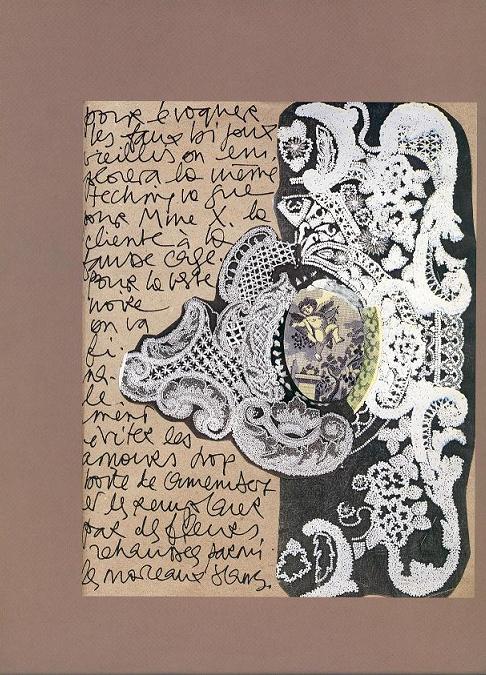 pour évoquer
les faux bijoux
vieillis on em.
ploiera la meme
technique que
pour Mme X. la
cliente à la
fausse cage.
Pour la veste
noire
on va
fi.
na.
le
ment
éviter les
amours trop
boite de Camembert
et les remplacer
par des fleurs
rehaussées parmi
les morceaux blancs.